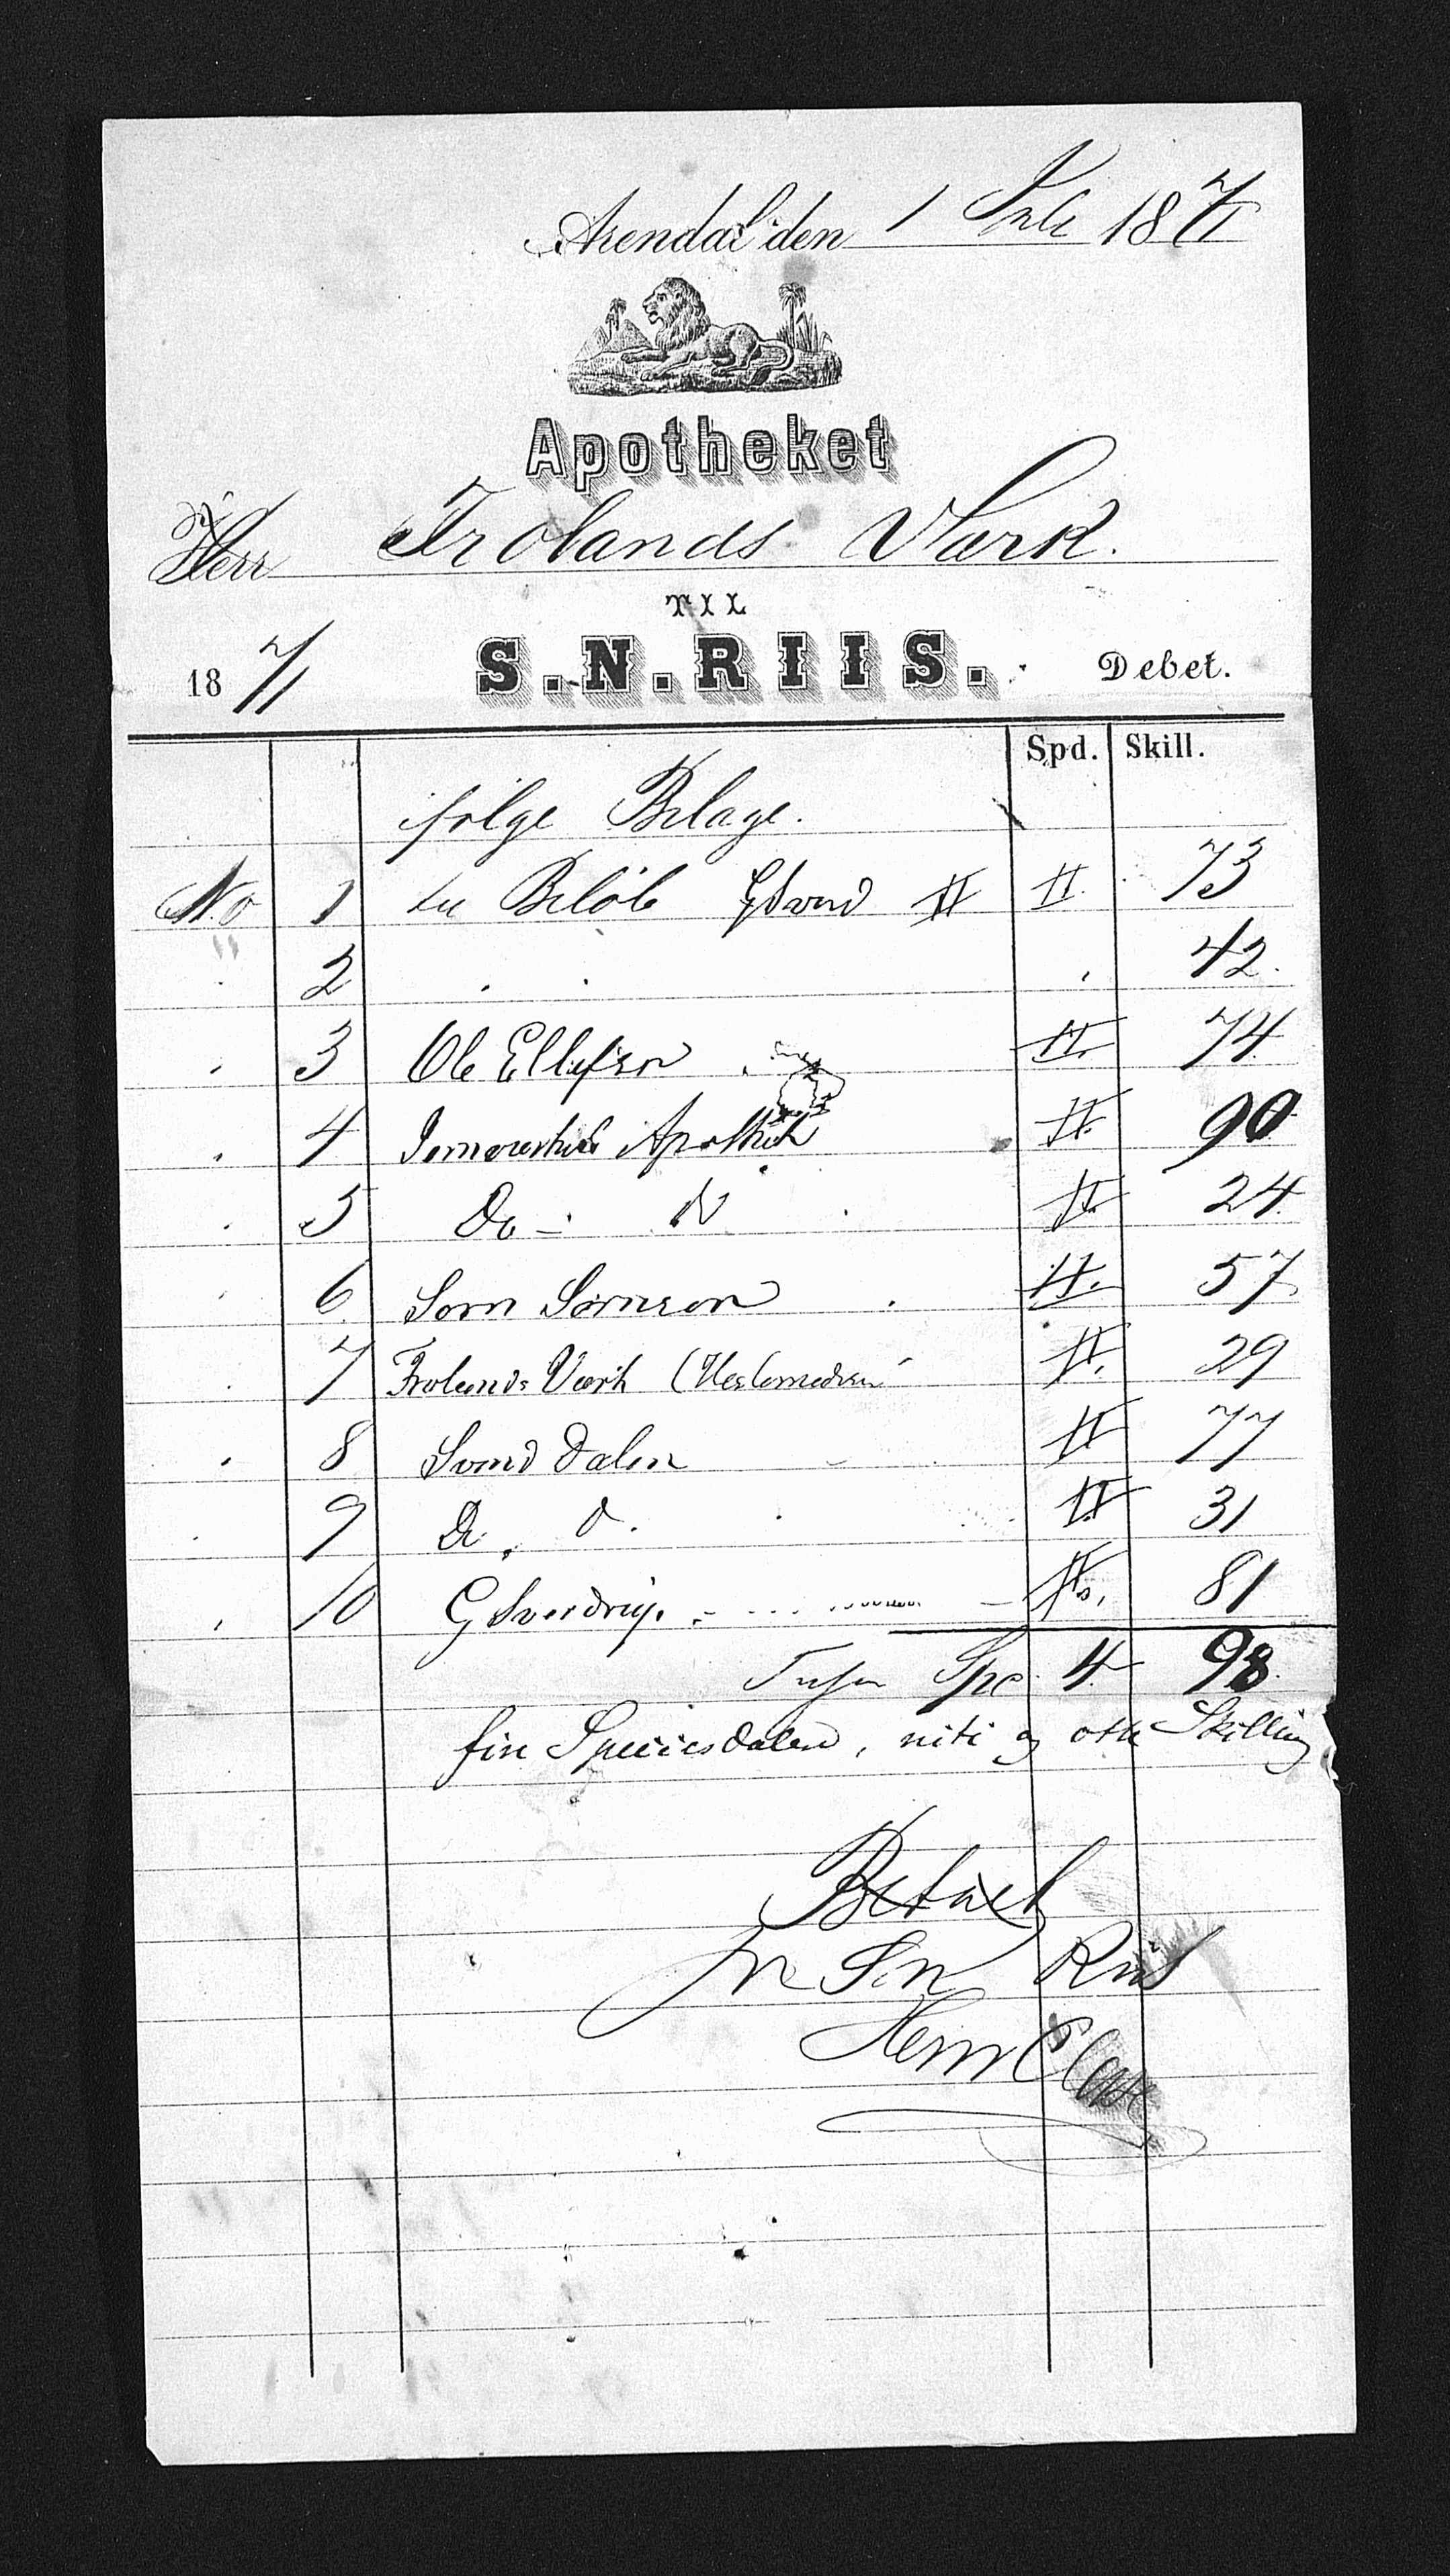 Arendal den 1 Juli 1871
Apotheket
Herr Frolands Værk.
TIL
1871 S.N.RIIS. Debet.
Spd. Skill.
ifølge Bilage.
No 1 til Beløb # # 73
" 2 . . . 42.
. 3 Ole Ellefsen . # 74
. 4 Apothek # 90
. 5 Do — # 24
. 6 Sørn Sørnson . # 57
. 7 Frolands Værk ( # 29
. 8 Svend Dalen # 77
. 9 Do. Do. # 31
. 10 G Sverdrup. # 81
Spd. 4 98.
fire Speciesdaler, niti og otte Skilling
Betalt
for S. N. Riis
Herm